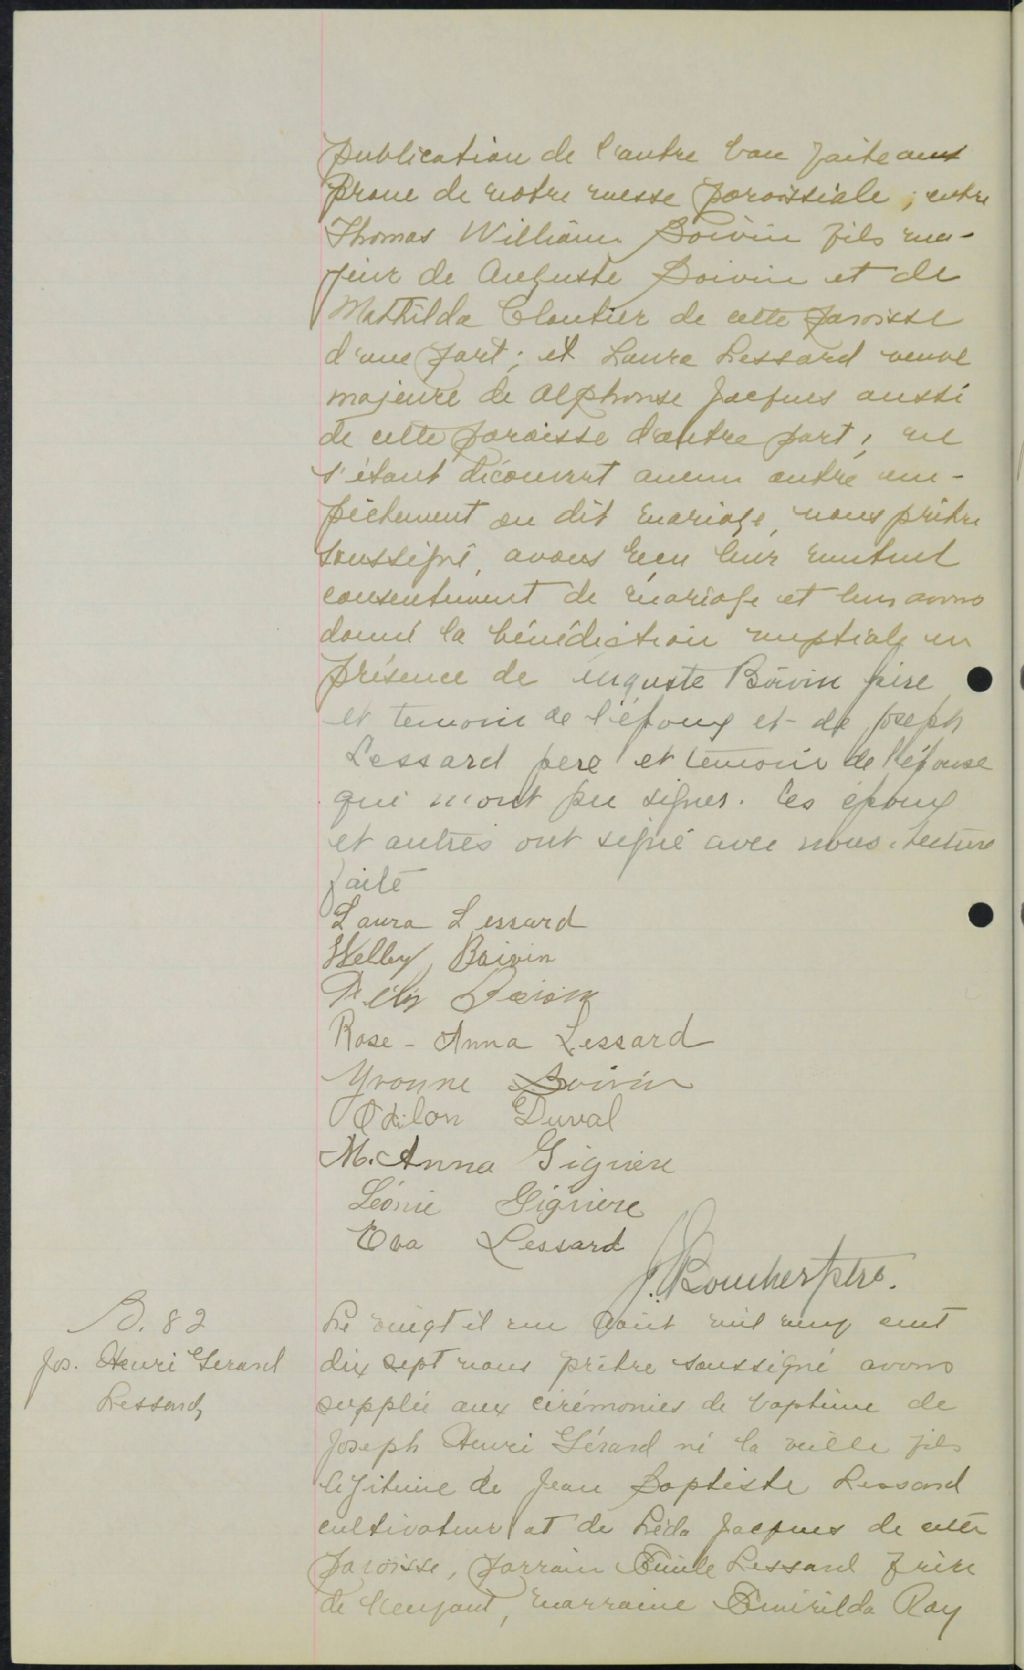 publication de l'autre ban faite aux
prone de notre messe paroissiale ; entre
Thomas William Boivin fils ma-
jeur de Auguste Boivin et de
Mathilda Cloutier de cette paroisse
d'une part ; et Laura Lessard veuve
majeure de Alphonse Jacques aussi
de cette paroisse d'autre part ; ne
s'étant découvert aucun autre em-
pêchement au dit mariage, nous prêtre
soussigné, avons reçu leur mutuel
consentement de mariage et leur avons
donné la bénédiction nuptiale en
présence de Auguste Boivin père
et temoin de l'époux et de Joseph
Lessard père et temoin de l'épouse
qui n'ont pu signer. les époux
et autres ont signé avec nous. Lecture
faite
Laura Lessard
Boivin
Boivin
Rose-Anna Lessard
Yvonne Boivin
Odilon Duval
M. Anna Giguère
Léonie Giguère
Eva Lessard
J. Boucher ptre.
B. 82
Jos. Henri Gerard
Lessard
Le vingt et un Août mil neuf cent
dix sept nous prêtre soussigné avons
supplée aux cérémonies de baptême de
Joseph Henri Gérard né la veille fils
légitime de Jean Baptiste Lessard
cultivateur et de Léda Jacques de cette
paroisse, parrain Emile Lessard frère
de l'enfant, marraine Emirilda Roy